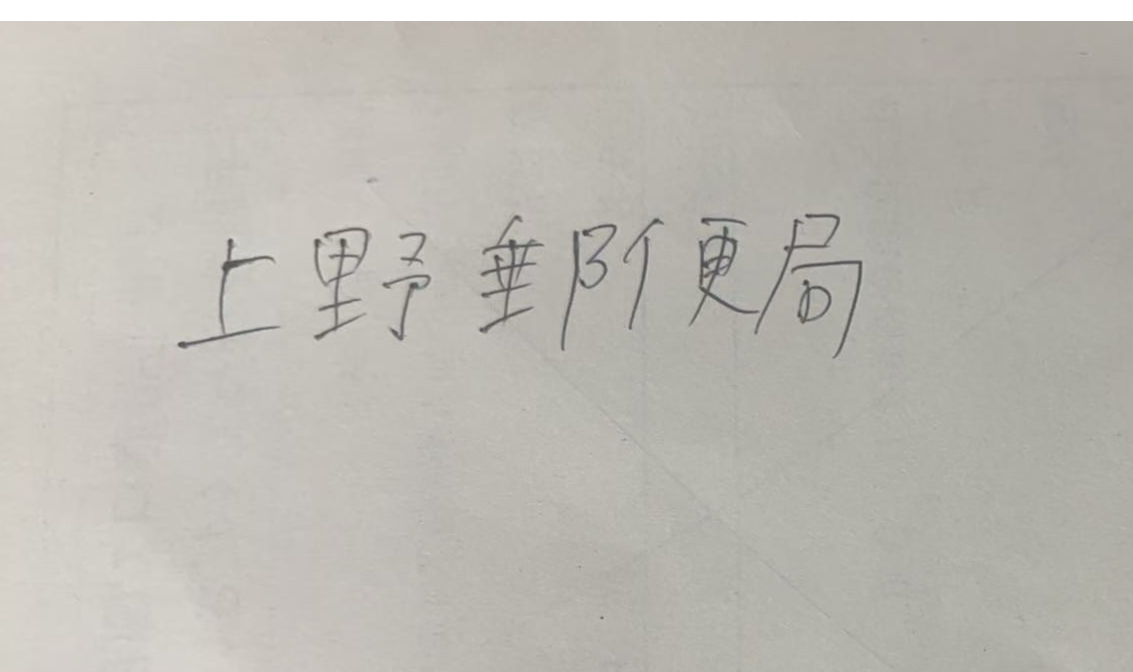 上野郵便局